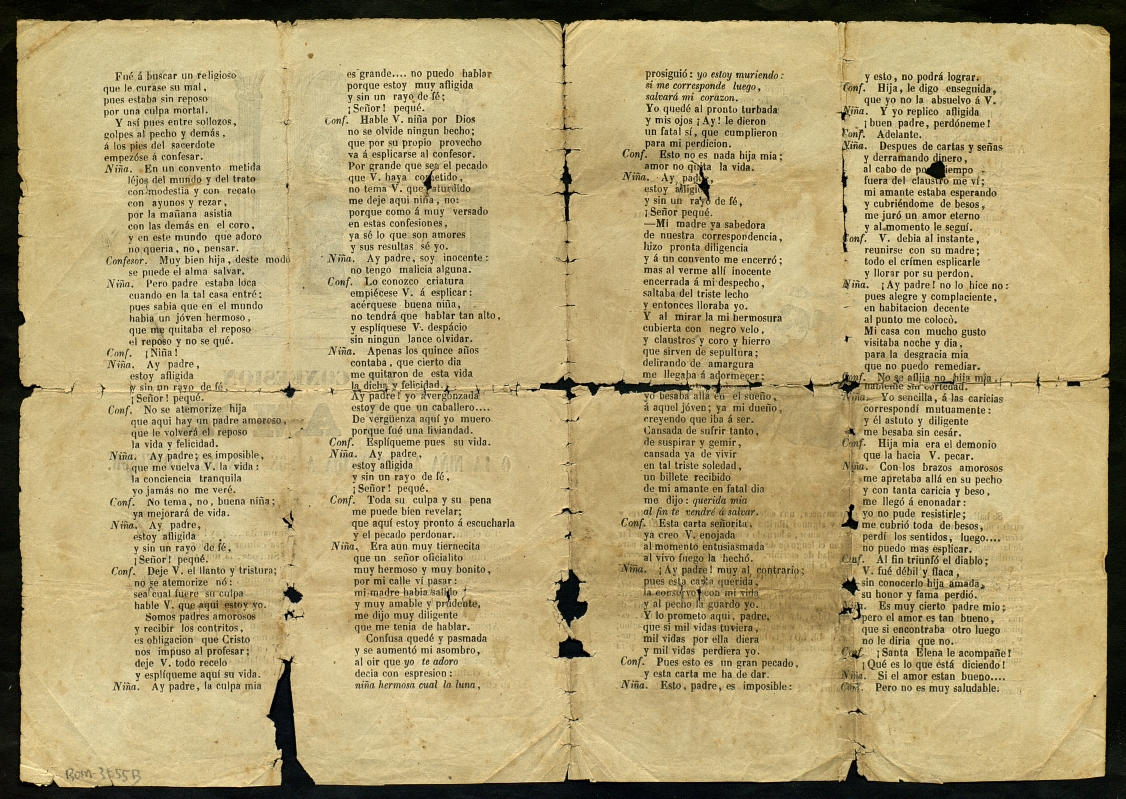 Fué á buscar un religioso
que le curase su mal,
pues estaba sin reposo
por una culpa mortal.
Y así pues entre sollozos,
golpes al pecho y demás,
á los pies del sacerdote
empezóse á confesar.
Niña. En un convento metida
léjos del mundo y del trato
con modestia y con recato
con ayunos y rezar,
por la mañana asistia
con las demás en el coro,
y en este mundo que adoro
no queria, no, pensar.
Confesor. Muy bien hija, deste modo
se puede el alma salvar.
Niña. Pero padre estaba loca
cuando en la tal casa entré;
pues sabia que en el mundo
habia un jóven hermoso,
que me quitaba el reposo
el reposo y no se qué.
Conf. ¡Niña!
Niña. Ay padre,
estoy afligida
y sin un rayo de fé,
¡Señor! pequé.
Conf. No se atemorize hija
que aqui hay un padre amoroso,
que le volverá el reposo
la vida y felicidad.
Niña. Ay padre; es imposible,
que me vuelva V. la vida:
la conciencia tranquila
yo jamás no me veré.
Conf. No tema, no, buena niña;
ya mejorará de vida.
Niña. Ay padre,
estoy afligida
y sin un rayo de fé,
¡Señor! pequé.
Conf. Deje V. el llanto y tristura;
no se atemorize nó:
sea cual fuere su culpa
hable V. que aqui estoy yo.
Somos padres amorosos
y recibir los contritos,
es obligacion que Cristo
nos impuso al profesar;
deje V. todo recelo
y esplíqueme aquí su vida.
Niña. Ay padre, la culpa mia
es grande.... no puedo hablar
porque estoy muy afligida
y sin un rayo de fé;
¡Señor! pequé.
Conf. Hable V. niña por Dios
no se olvide ningun hecho;
que por su propio provecho
va á esplicarse al confesor.
Por grande que sea el pecado
que V. haya cometido,
no tema V. que aturdido
me deje aqui niña, no:
porque como á muy versado
en estas confesiones,
ya sé lo que son amores
y sus resultas sé yo.
Niña. Ay padre, soy inocente:
no tengo malicia alguna.
Conf. Lo conozco criatura
empiécese V. á esplicar:
acérquese buena niña,
no tendrá que hablar tan alto,
y esplíquese V. despácio
sin ningun lance olvidar.
Niña. Apenas los quince años
contaba, que cierto dia
me quitaron de esta vida
la dicha y felicidad.
Ay padre! yo avergonzada
estoy de que un caballero....
De vergüenza aquí yo muero
porque fué una liviandad.
Conf. Esplíqueme pues su vida.
Niña. Ay padre,
estoy afligida
y sin un rayo de fé,
¡Señor! pequé.
Conf. Toda su culpa y su pena
me puede bien revelar;
que aquí estoy pronto á escucharla
y el pecado perdonar.
Niña. Era aun muy tiernecita
que un señor oficialito
muy hermoso y muy bonito,
por mi calle ví pasar:
mi madre habia salido
y muy amable y prudente,
me dijo muy diligente
que me tenia de hablar.
Confusa quedé y pasmada
y se aumentó mi asombro,
al oir que yo te adoro
decia con espresion:
niña hermosa cual la luna,
prosiguió: yo estoy muriendo:
si me corresponde luego,
salvará mi corazon.
Yo quedé al pronto turbada
y mis ojos ¡Ay! le dieron
un fatal sí, que cumplieron
para mi perdicion.
Conf. Esto no es nada hija mia;
amor no quita la vida.
Niña. Ay padre,
estoy afligida
y sin un rayo de fé,
¡Señor pequé.
—Mi madre ya sabedora
de nuestra correspondencia,
hizo pronta diligencia
y á un convento me encerró;
mas al verme allí inocente
encerrada á mi despecho,
saltaba del triste lecho
y entonces lloraba yo.
Y al mirar la mi hermosura
cubierta con negro velo,
y claustros y coro y hierro
que sirven de sepultura;
delirando de amargura
me llegaba á adormecer;
yo besaba allá en el sueño,
á aquel jóven; ya mi dueño,
creyendo que iba á ser.
Cansada de sufrir tanto,
de suspirar y gemir,
cansada ya de vivir
en tal triste soledad,
un billete recibido
de mi amante en fatal dia
me dijo: querida mia
al fin te vendré á salvar.
Conf. Esta carta señorita,
ya creo V. enojada
al momento entusiasmada
al vivo fuego la hechó.
Niña. ¡Ay padre! muy al contrario;
pues esta carta querida,
la conservo con mi vida
y al pecho la guardo yo.
Y lo prometo aqui, padre,
que si mil vidas tuviera,
mil vidas por ella diera
y mil vidas perdiera yo.
Conf. Pues esto es un gran pecado,
y esta carta me ha de dar.
Niña. Esto, padre, es imposible:
y esto, no podrá lograr.
Conf. Hija, le digo enseguida,
que yo no la absuelvo á V.
Niña. Y yo replico afligida
¡buen padre, perdóneme!
Conf. Adelante.
Niña. Despues de cartas y señas
y derramando dinero,
al cabo de poco tiempo
fuera del claustro me ví;
mi amante estaba esperando
y cubriéndome de besos,
me juró un amor eterno
y al momento le seguí.
Conf. V. debia al instante,
reunirse con su madre;
todo el crímen esplicarle
y llorar por su perdon.
Niña. ¡Ay padre! no lo hice no:
pues alegre y complaciente,
en habitacion decente
al punto me colocò.
Mi casa con mucho gusto
visitaba noche y dia,
para la desgracia mia
que no puedo remediar.
Conf. No se aflija no hija mia,
hábleme sin cortedad.
Niña. Yo sencilla, á las caricias
correspondí mutuamente:
y él astuto y diligente
me besaba sin cesár.
Conf. Hija mia era el demonio
que la hacia V. pecar.
Niña. Con los brazos amorosos
me apretaba allá en su pecho
y con tanta caricia y beso,
me llegó á enonadar:
yo no pude resistirle;
me cubrió toda de besos,
perdí los sentidos, luego....
no puedo mas esplicar.
Conf. Al fin triunfó el diablo;
V. fué débil y flaca,
sin conocerlo hija amada,
su honor y fama perdió.
Niña. Es muy cierto padre mio;
pero el amor es tan bueno,
que si encontraba otro luego
no le diria que no.
Conf. ¡Santa Elena le acompañe!
¡Qué es lo que está diciendo!
Niña. Si el amor estan bueno....
Conf. Pero no es muy saludable.
BOM-3655B